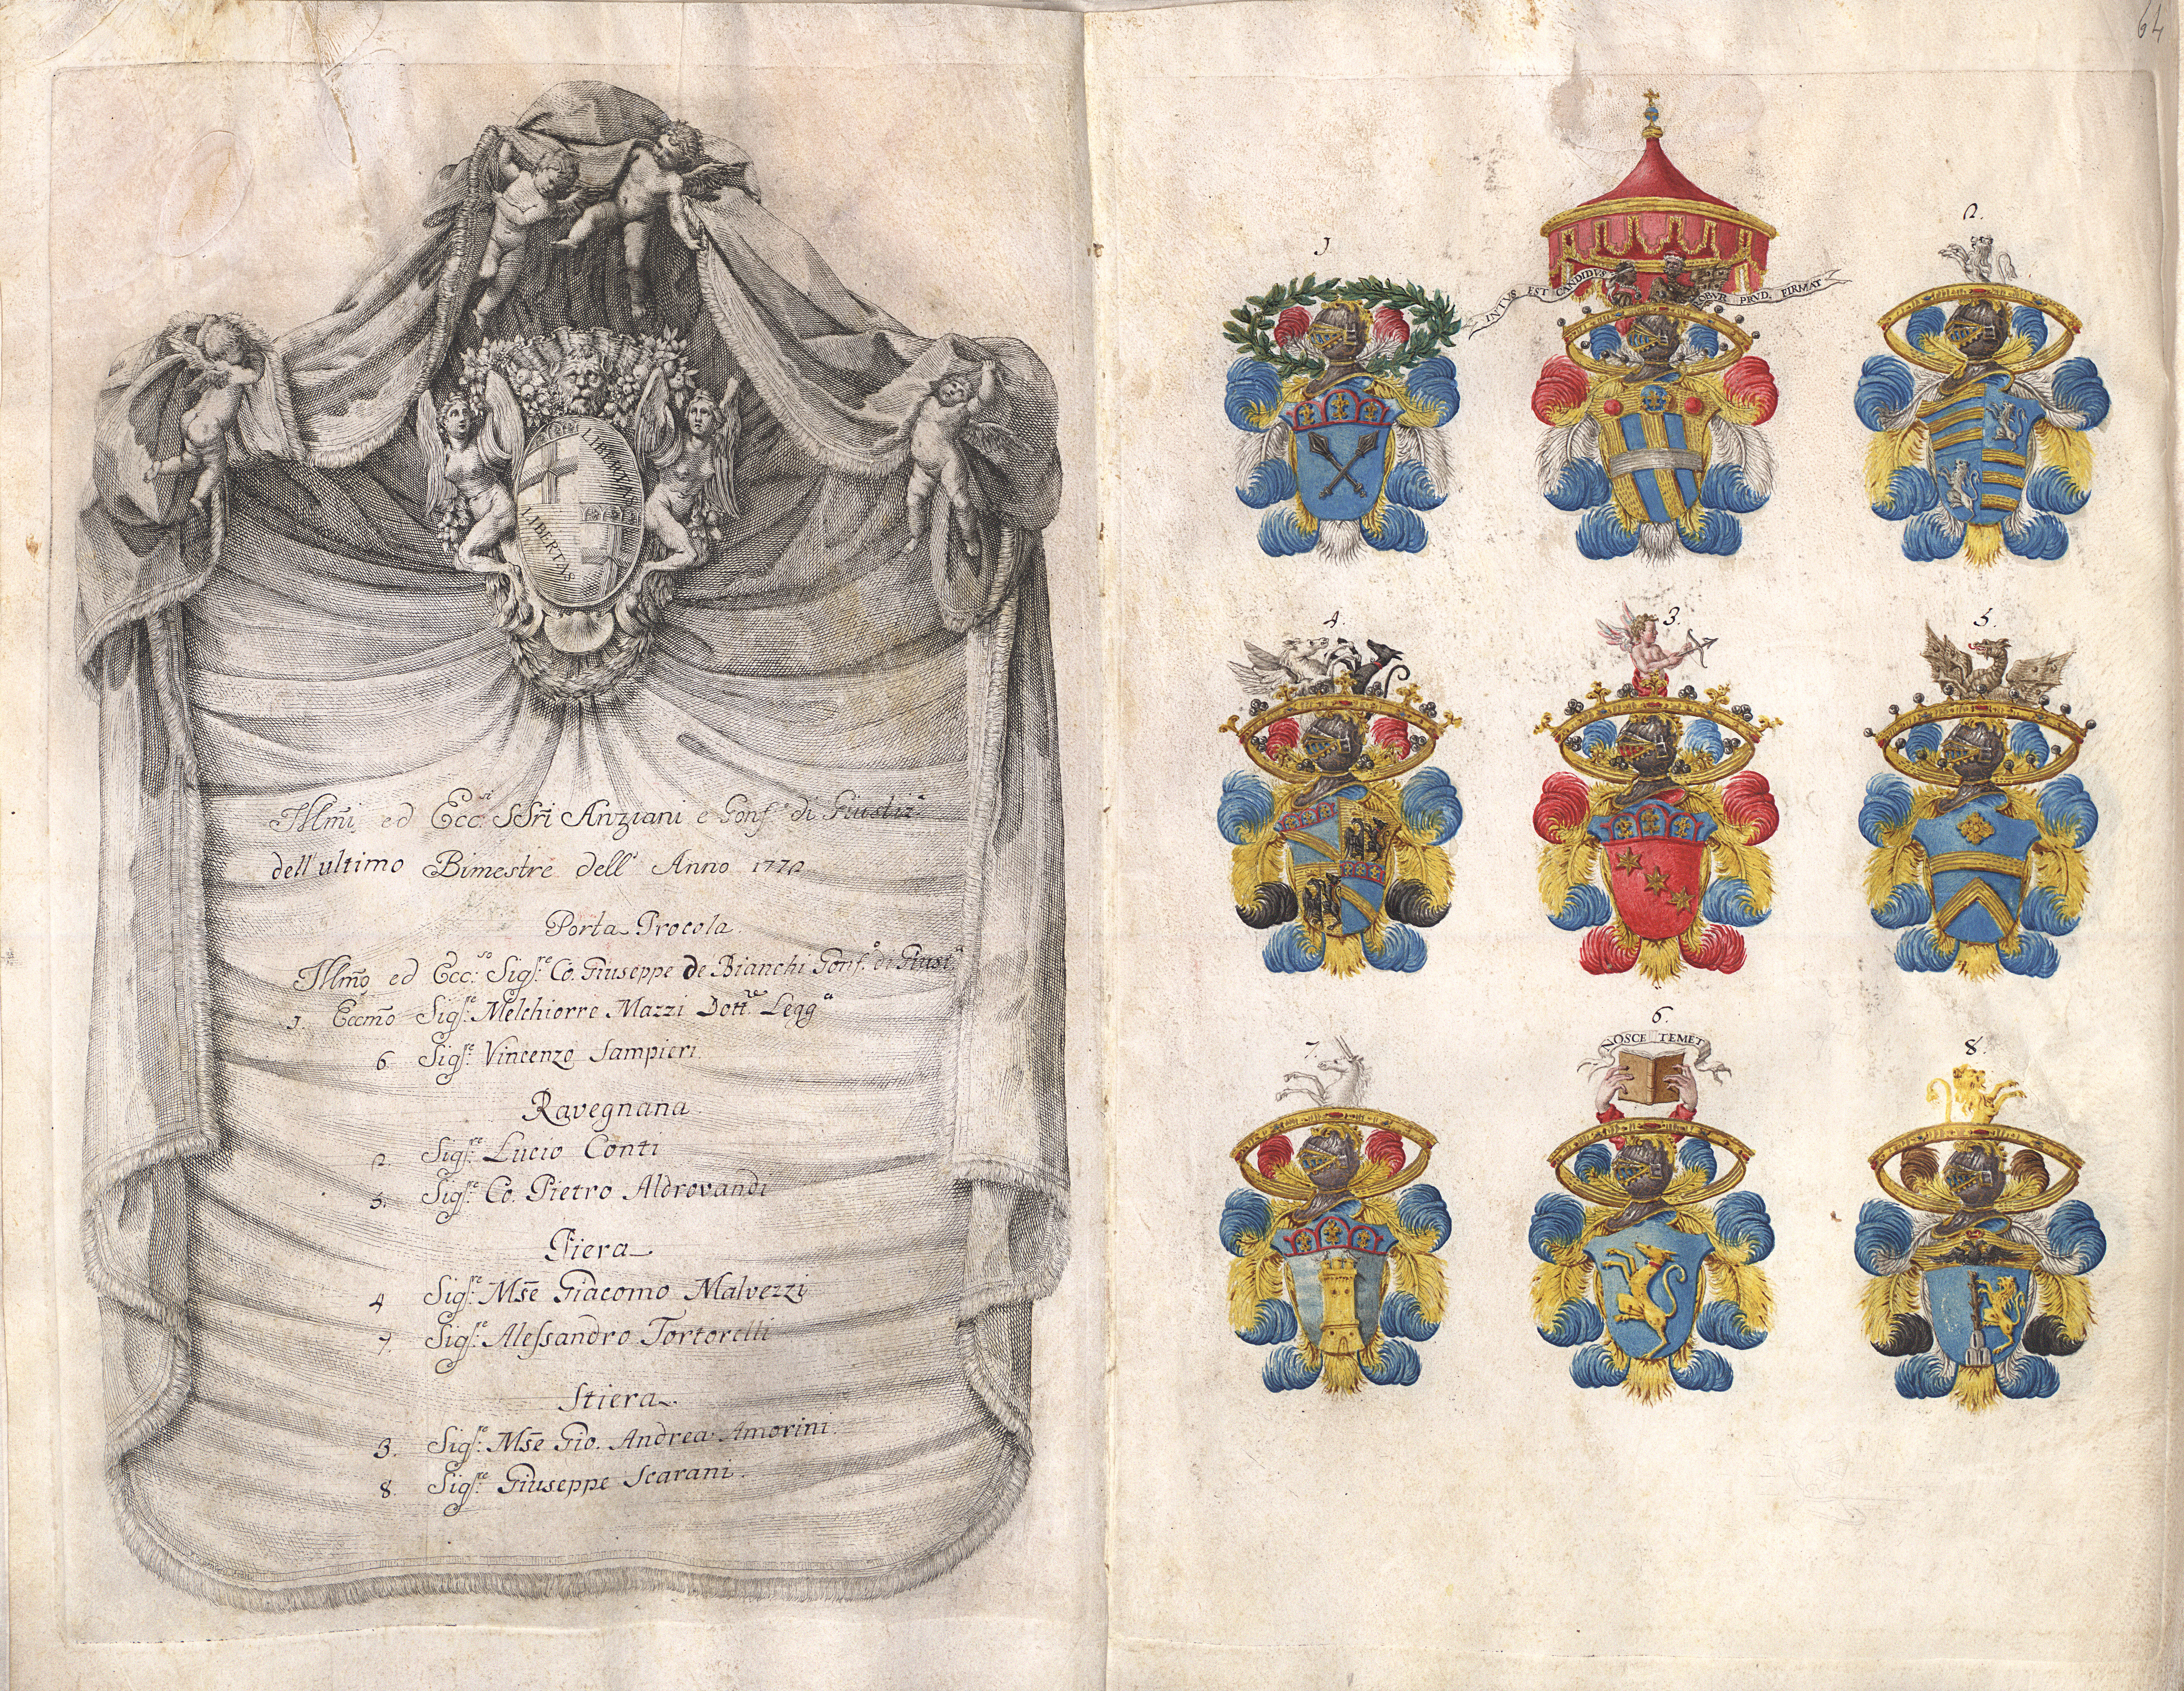 LIBERTAS
LIBERTAS
Illmi ed Ecc.si SSri Anziani e Gonf.e di Giustiz.a
dell'ultimo Bimestre dell' Anno 1772
Porta Procola.
Illmo ed Ecc.so Sigr.e Co. Giuseppe de Bianchi Gonf.e di Giust.a
1. Eccmo Sigr.e Melchiorre Mazzi Dott.re Legg.a
6. Sigr.e Vincenzo Sampieri.
Ravegnana.
2. Sigr.e Lucio Conti
5. Sigr.e Co. Pietro Aldrovandi
Piera
4 Sigr.e Mse Giacomo Malvezzi
7. Sigr.e Alessandro Tortorelli
Stiera.
3. Sigr.e Mse Gio. Andrea Amorini.
8. Sigr.e Giuseppe Scarani.
64
1
INTVS EST CANDIDVS
ROBVR PRVD. FIRMAT
2.
4.
3.
5.
7.
6.
NOSCE TEMET
8.